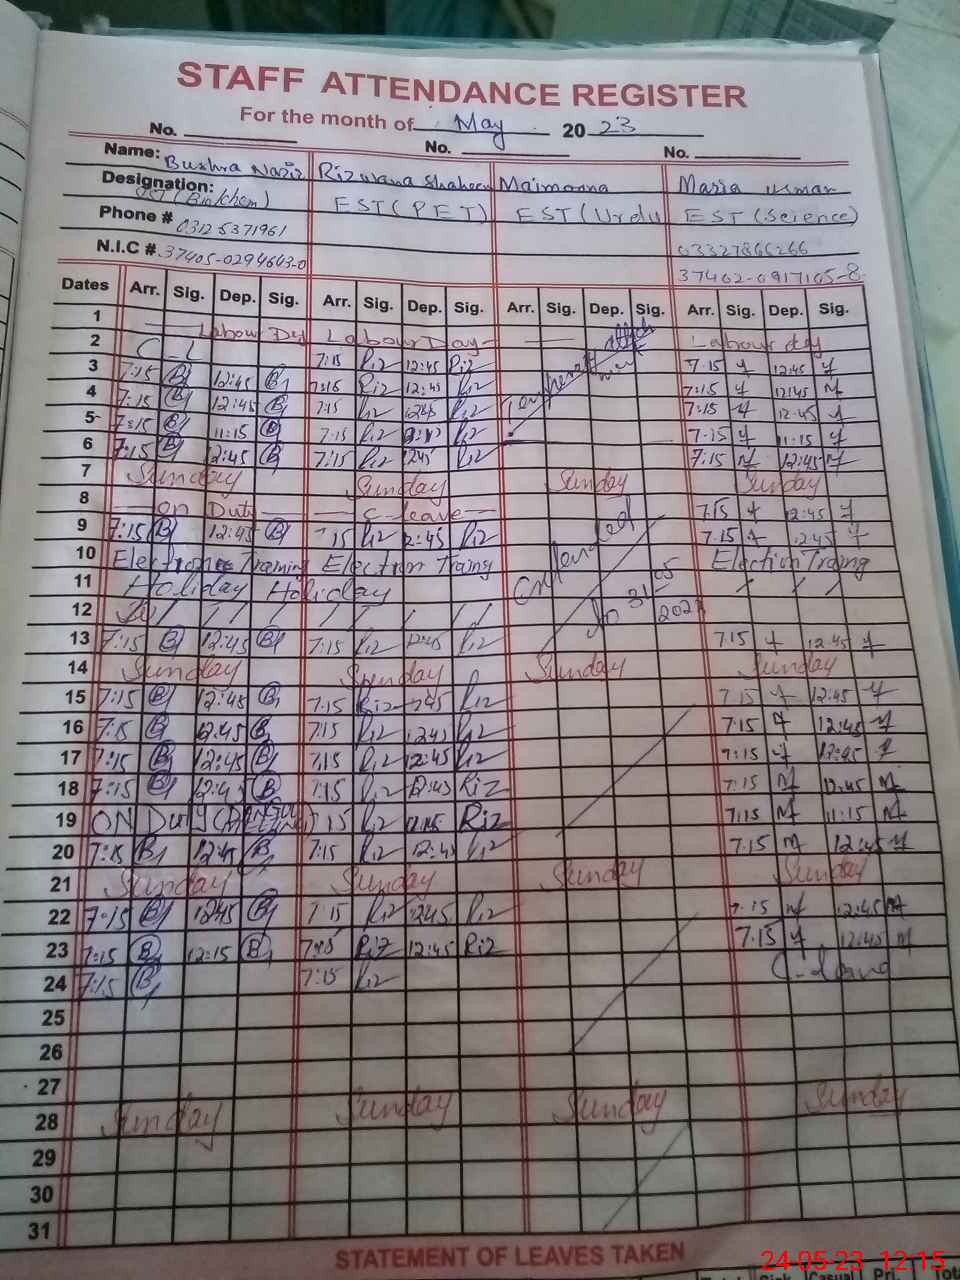 STAFF ATTENDANCE REGISTER
For the month of May 2023
No. No. No.
Name: Bushra Nazir Rizwana Shaheen Maimoona Maria usman
Designation: SST (Bio/chem) EST (PET) EST (Urdu EST (Science)
Phone # 0312 5371961 03327866266
N.I.C # 37405-0294643-0 37402-0917165-8
Dates Arr. Sig. Dep. Sig. Arr. Sig. Dep. Sig. Arr. Sig. Dep. Sig. Arr. Sig. Dep. Sig.
1 Labour Day Labour Day Labour day
2 C L 7:15 Riz 12:45 Riz 7.15 12:45
3 7:15 B 12:45 B 7:15 Riz 12:45 Riz 7:15 12:45
4 7:15 B 12:45 B 7:15 Riz 12:45 Riz 7:15 12:45
5 7:15 B 11:15 B 7:15 Riz Riz 7:15 11:15
6 7:15 B 12:45 B 7:15 Riz 12:45 Riz 7:15 12:45
7 Sunday Sunday Sunday Sunday
8 on Duty C-leave 7.15 12:45
9 7:15 B 12:45 B 7:15 Riz 12:45 Riz 7.15 12:45
10 Election Training Election Traing Election Traing
11 Holiday Holiday
Extended
31-05
12
13 7:15 B 12:45 B 7:15 Riz 12:45 Riz 7.15 12:45
14 Sunday Sunday Sunday Sunday
15 7:15 B 12:45 B 7.15 Riz 12:45 Riz 7.15 12:45
16 7:15 B 12:45 B 7:15 Riz 12:45 Riz 7:15 12:45
17 7:15 B 12:45 B 7:15 Riz 12:45 Riz 7:15 12:45
18 7:15 B 12:45 B 7:15 Riz 12:45 Riz 7:15 12:45
19 ON Duty 7:15 Riz 12:45 Riz 7:15 11:15
20 7:15 B 12:45 B 7:15 Riz 12:45 Riz 7.15 12:45
21 Sunday Sunday Sunday Sunday
22 7:15 B 1245 B 7:15 Riz 1245 Riz 7.15 12:45
23 7:15 B 12:15 B 7:15 Riz 12:45 Riz 7.15 12:45
24 7:15 B 7:15 Riz
25
26
27
28 Sunday Sunday Sunday Sunday
29
30
31
STATEMENT OF LEAVES TAKEN
24-05-23 12:15